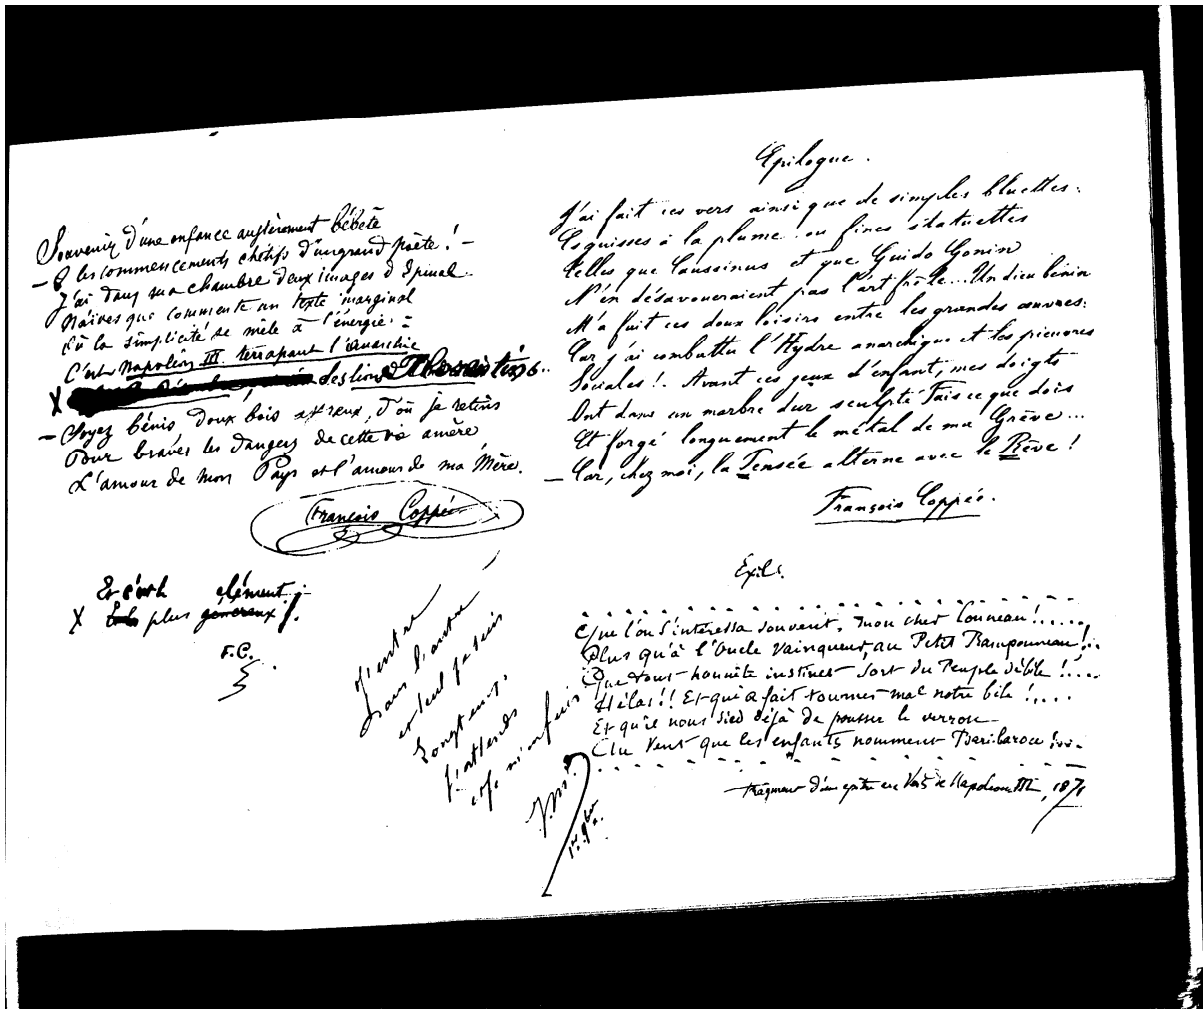 Souvenir d'une enfance augièrement bébête
– O les commencements chétifs d'un grand poète ! –
J'ai dans ma chambre deux images d'Epinal
Naïves que commente un texte marginal
Où la simplicité se mêle à l'énergie :
C'est Napoléon III terrapant l'anarchie
X des lions
– Soyez bénis doux bois affreux, d'où je retins
Pour braver les dangers de cette vie amère
L'amour de mon Pays et l'amour de ma Mère.
François Coppée
Et c'est clément :
X plus généreux !.
F.C.
J'entre
Dans l'antre
et seul je suis
Longtemps,
J'attends
et je m'enfuis
1er 9bre
Epilogue.
J'ai fait ces vers ainsi que de simples bluettes :
Esquisses à la plume ou fines statuettes
Telles que Caussinus et que Guido Gonin
N'en désavoueraient pas l'art frêle... Un dieu bénin
M'a fait ces doux loisirs entre les grandes œuvres :
Car j'ai combattu l'Hydre anarchique et les pieuvres
Sociales !. Avant ces jeux d'enfant, mes doigts
Ont dans un marbre dur sculpté Fais ce que dois
Et forgé longuement le métal de ma Grève...
– Car, chez moi, la Pensée alterne avec le Rêve !
François Coppée.
Exil.
Que l'on s'intéressa souvent, mon cher Conneau !.....
Plus qu'à l'Oncle Vainqueur, au Petit Ramponneau !...
Que tout honnête instinct sort du Peuple débile !....
Hélas !! Et qui a fait tourner mal notre bile !....
Et qu'il nous sied déjà de pousser le verrou
Au Vent que les enfants nomment Bari-barou !...
Fragment d'une épître en Vers de Napoléon III, 1871